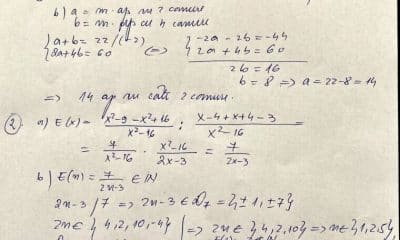 b) a = nr. ap cu 2 camere
b = nr. ap cu 4 camere
{a+b = 22 /·(-2) {-2a - 2b = -44
{2a+4b = 60 (=) {2a + 4b = 60
2b = 16
b = 8 => a = 22-8 = 14
=> 14 ap au câte 2 camere.
2. a) E(x) = x²-9-x²+16 / x²-16 : x-4+x+4-3 / x²-16 =
= 7 / x²-16 · x²-16 / 2x-3 = 7 / 2x-3
b) E(n) = 7 / 2n-3 ∈ ℕ
2n-3 / 7 => 2n-3 ∈ D₇ = {±1, ±7}
2n ∈ {4, 2, 10, -4} | => 2n ∈ {4, 2, 10} => n ∈ {1, 2, 5}